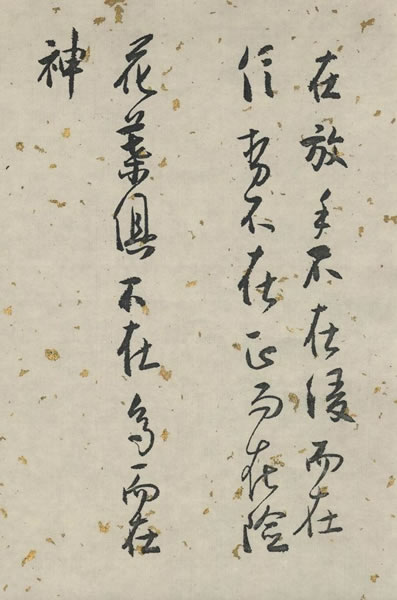 在放手不在而在
信势不在正而在险
花葉俱不在多而在
神